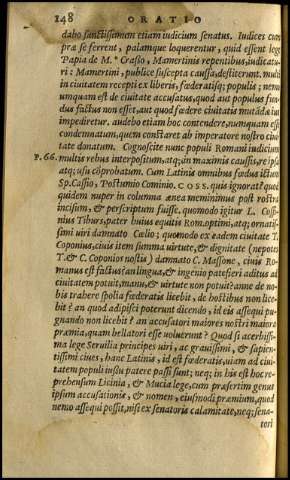 148 ORATIO
dabo sanctissimum etiam iudicium senatus. Iudices cum
præ se ferrent, palamque loquerentur, quid essent lege
Papia de M. Crasso, Mamertinis repentibus, iudicatu-
ri: Mamertini, publice suscepta caussa, destiterunt. multi
in ciuitatem recepti ex liberis, fœderatisq; populis; nemo
umquam est de ciuitate accusatus, quod aut populus fun-
dus factus non esset, aut quod fœdere ciuitatis mutādæ ius
impediretur. audebo etiam hoc contendere, numquam esse
condemnatum, quem constaret ab imperatore nostro ciui-
tate donatum. Cognoscite nunc populi Romani iudicium
P. 66. multis rebus interpositum, atq; in maximis caussis, re ipsa
atq; usu cōprobatum. Cum Latinis omnibus fœdus ictum
Sp. Cassio, Postumio Cominio. COSS. quis ignorat? quod
quidem nuper in columna ænea meminimus post rostra
incisum, & perscriptum fuisse. quomodo igitur L. Cossi-
nius Tiburs, pater huius equitis Rom. optimi, atq; ornatis-
simi uiri damnato Cœlio; quomodo ex eadem ciuitate T.
Coponius, ciuis item summa uirtute, & dignitate (nepotes
T. & C. Coponios nostis) damnato C. Massone, ciuis Ro-
manus est factus? an lingua, & ingenio patefieri aditus ad
ciuitatem potuit, manu, & uirtute non potuit? anne de no-
bis trahere spolia fœderatis licebit, de hostibus non lice-
bit? an quod adipisci poterunt dicendo, id eis assequi pu-
gnando non licebit? an accusatori maiores nostri maiora
præmia, quam bellatori esse uoluerunt? Quod si acerbissi-
ma lege Seruilia principes uiri, ac grauissimi, & sapien-
tissimi ciues, hanc Latinis, id est fœderatis, uiam ad ciui-
tatem populi iussu patere passi sunt; neq; in his est hoc re-
prehensum Licinia, & Mucia lege, cum præsertim genus
ipsum accusationis, & nomen, eiusmodi præmium, quod
nemo assequi possit, nisi ex senatoris calamitate, neq; sena-
tori